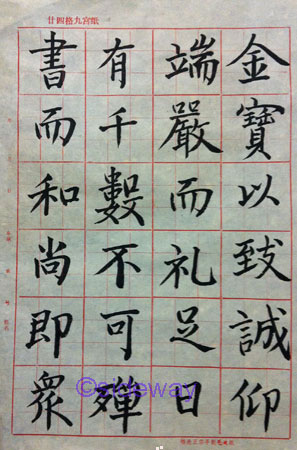 紙宮九格四廿
金寶以致誠仰
端嚴而礼足日
有千數不可殫
書而和尚即衆
©sideway